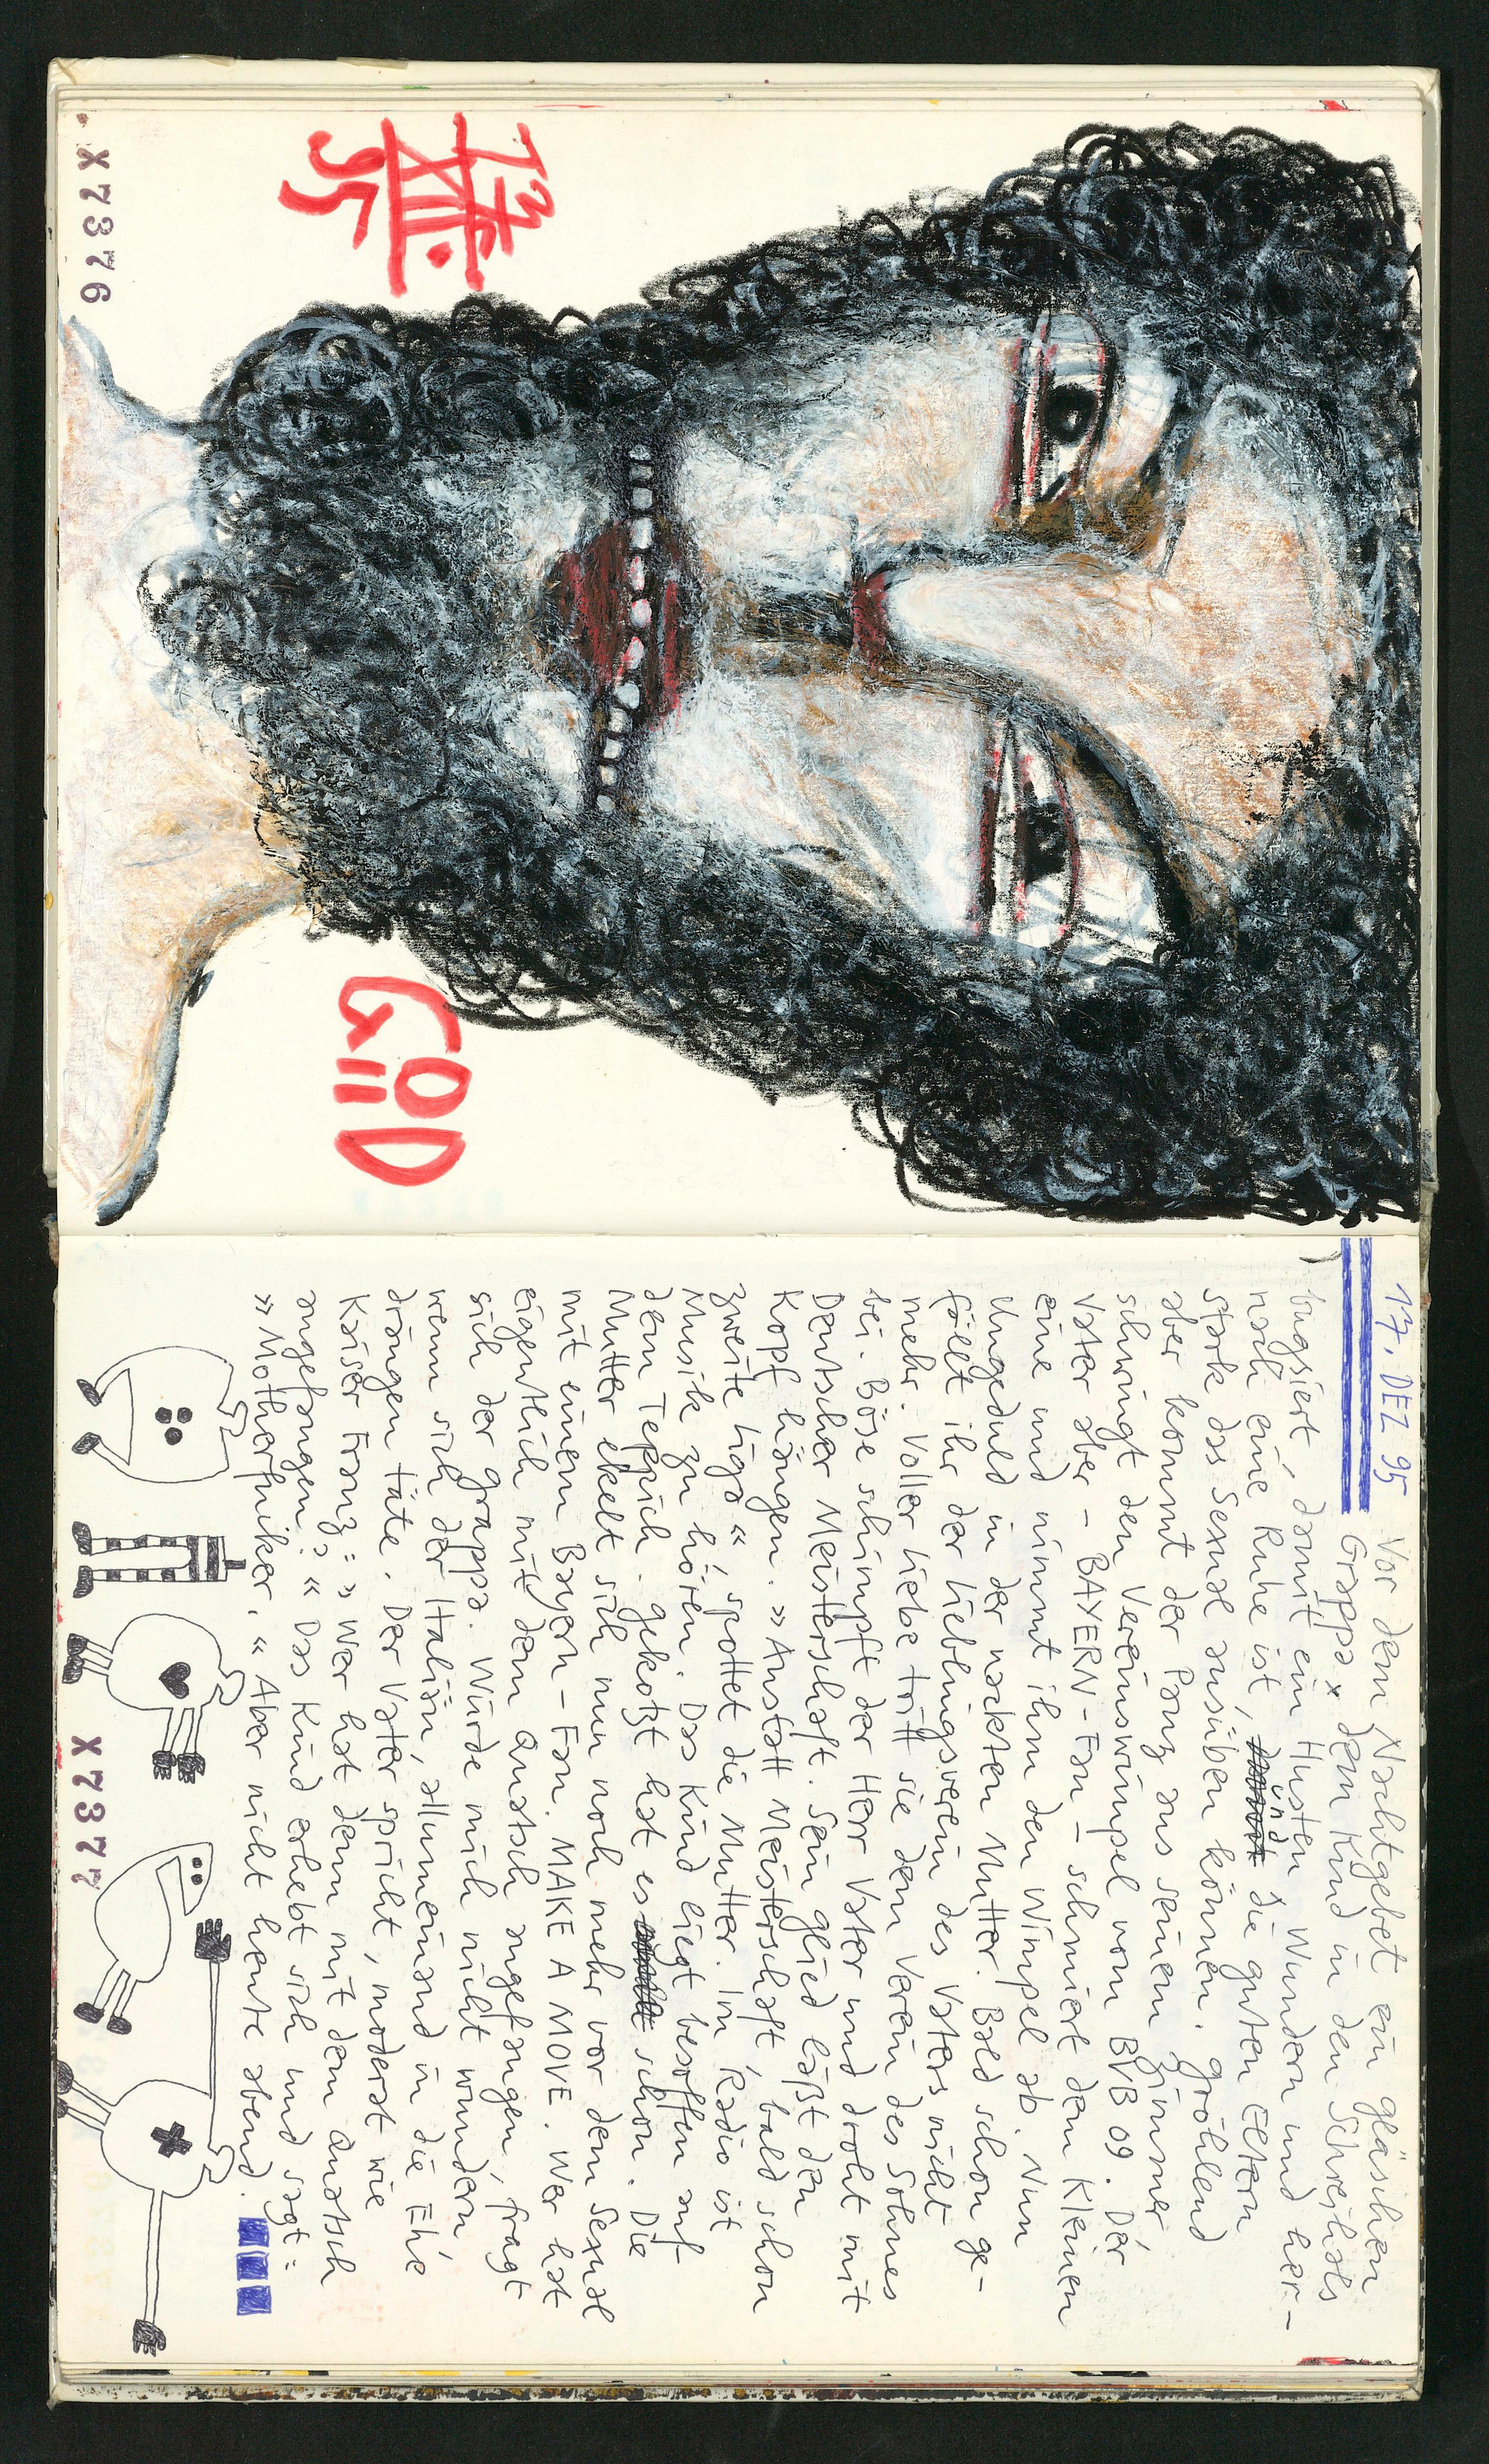 17.
XII.
95
X7376
17. DEZ 95
Vor dem Nachtgebet ein gläschen
Grappa x dem Kind in den Schreihals
bugsiert, damit ein Husten Wundern und her-
nach eine Ruhe ist, und die guten Eltern
stark das Sexual ausüben können. grölend
aber kommt der Panz aus seinem Zimmer
schwingt den Vereinswimpel vom BVB 09. Der
Vater aber - BAYERN-Fan - schmiert dem Kleinen
eine und nimmt ihm den Wimpel ab. Nun
Ungeduld in der nackten Mutter. Bald schon ge-
fällt ihr der Lieblingsverein des Vaters nicht
mehr. Voller Liebe tritt sie dem Verein des Sohnes
bei. Böse schimpft der Herr Vater und droht mit
Deutscher Meisterschaft. Sein glied läßt den
Kopf hängen. »Anstatt Meisterschaft, bald schon
zweite Liga«, spottet die Mutter. Im Radio ist
Musik zu hören. Das Kind liegt besoffen auf
dem Teppich. gekotzt hat es schon. Die
Mutter ekelt sich nun noch mehr vor dem Sexual
mit einem Bayern-Fan. MAKE A MOVE. Wer hat
eigentlich mit dem Quatsch angefangen, fragt
sich der grappa. Würde mich nicht wundern,
wenn sich der Italiän, allumeinand in die Ehe
drängen täte. Der Vater spricht, moderat wie
Kaiser Franz: »Wer hat denn mit dem Quatsch
angefangen?« Das Kind erhebt sich und sagt:
»Motherfuiker.« Aber nicht heute abend.
X7377